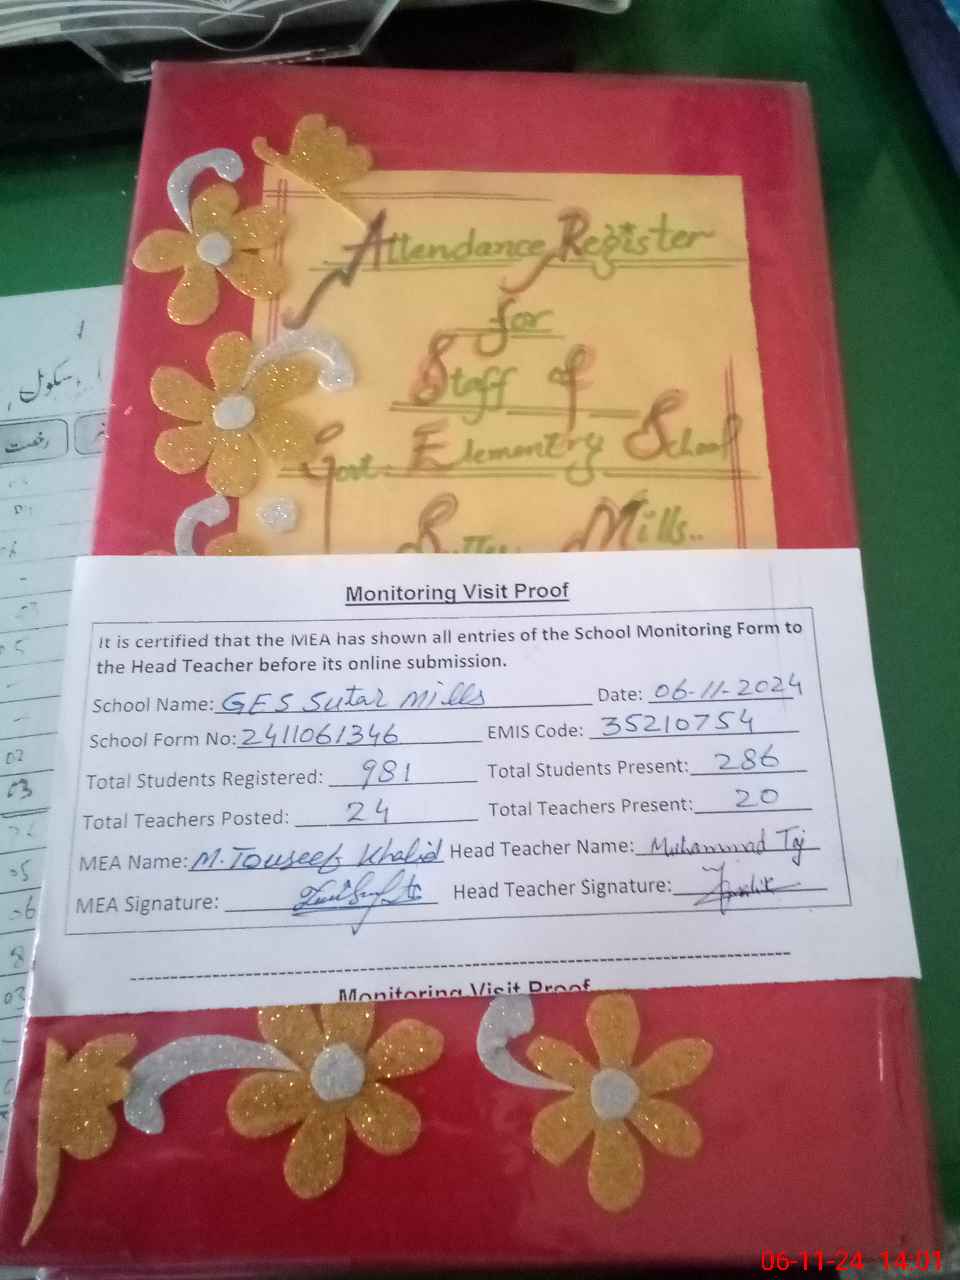 Attendance Register
for
Staff of
Govt. Elementry School
Mills..
سکول
رخصت
Monitoring Visit Proof
It is certified that the MEA has shown all entries of the School Monitoring Form to
the Head Teacher before its online submission.
School Name: GES Sutar Mills Date: 06-11-2024
School Form No: 2411061346 EMIS Code: 35210754
Total Students Registered: 981 Total Students Present: 286
Total Teachers Posted: 24 Total Teachers Present: 20
MEA Name: M. Touseef Khalid Head Teacher Name: Muhammad Taj
MEA Signature: Head Teacher Signature:
Monitoring Visit Proof
06-11-24 14:01